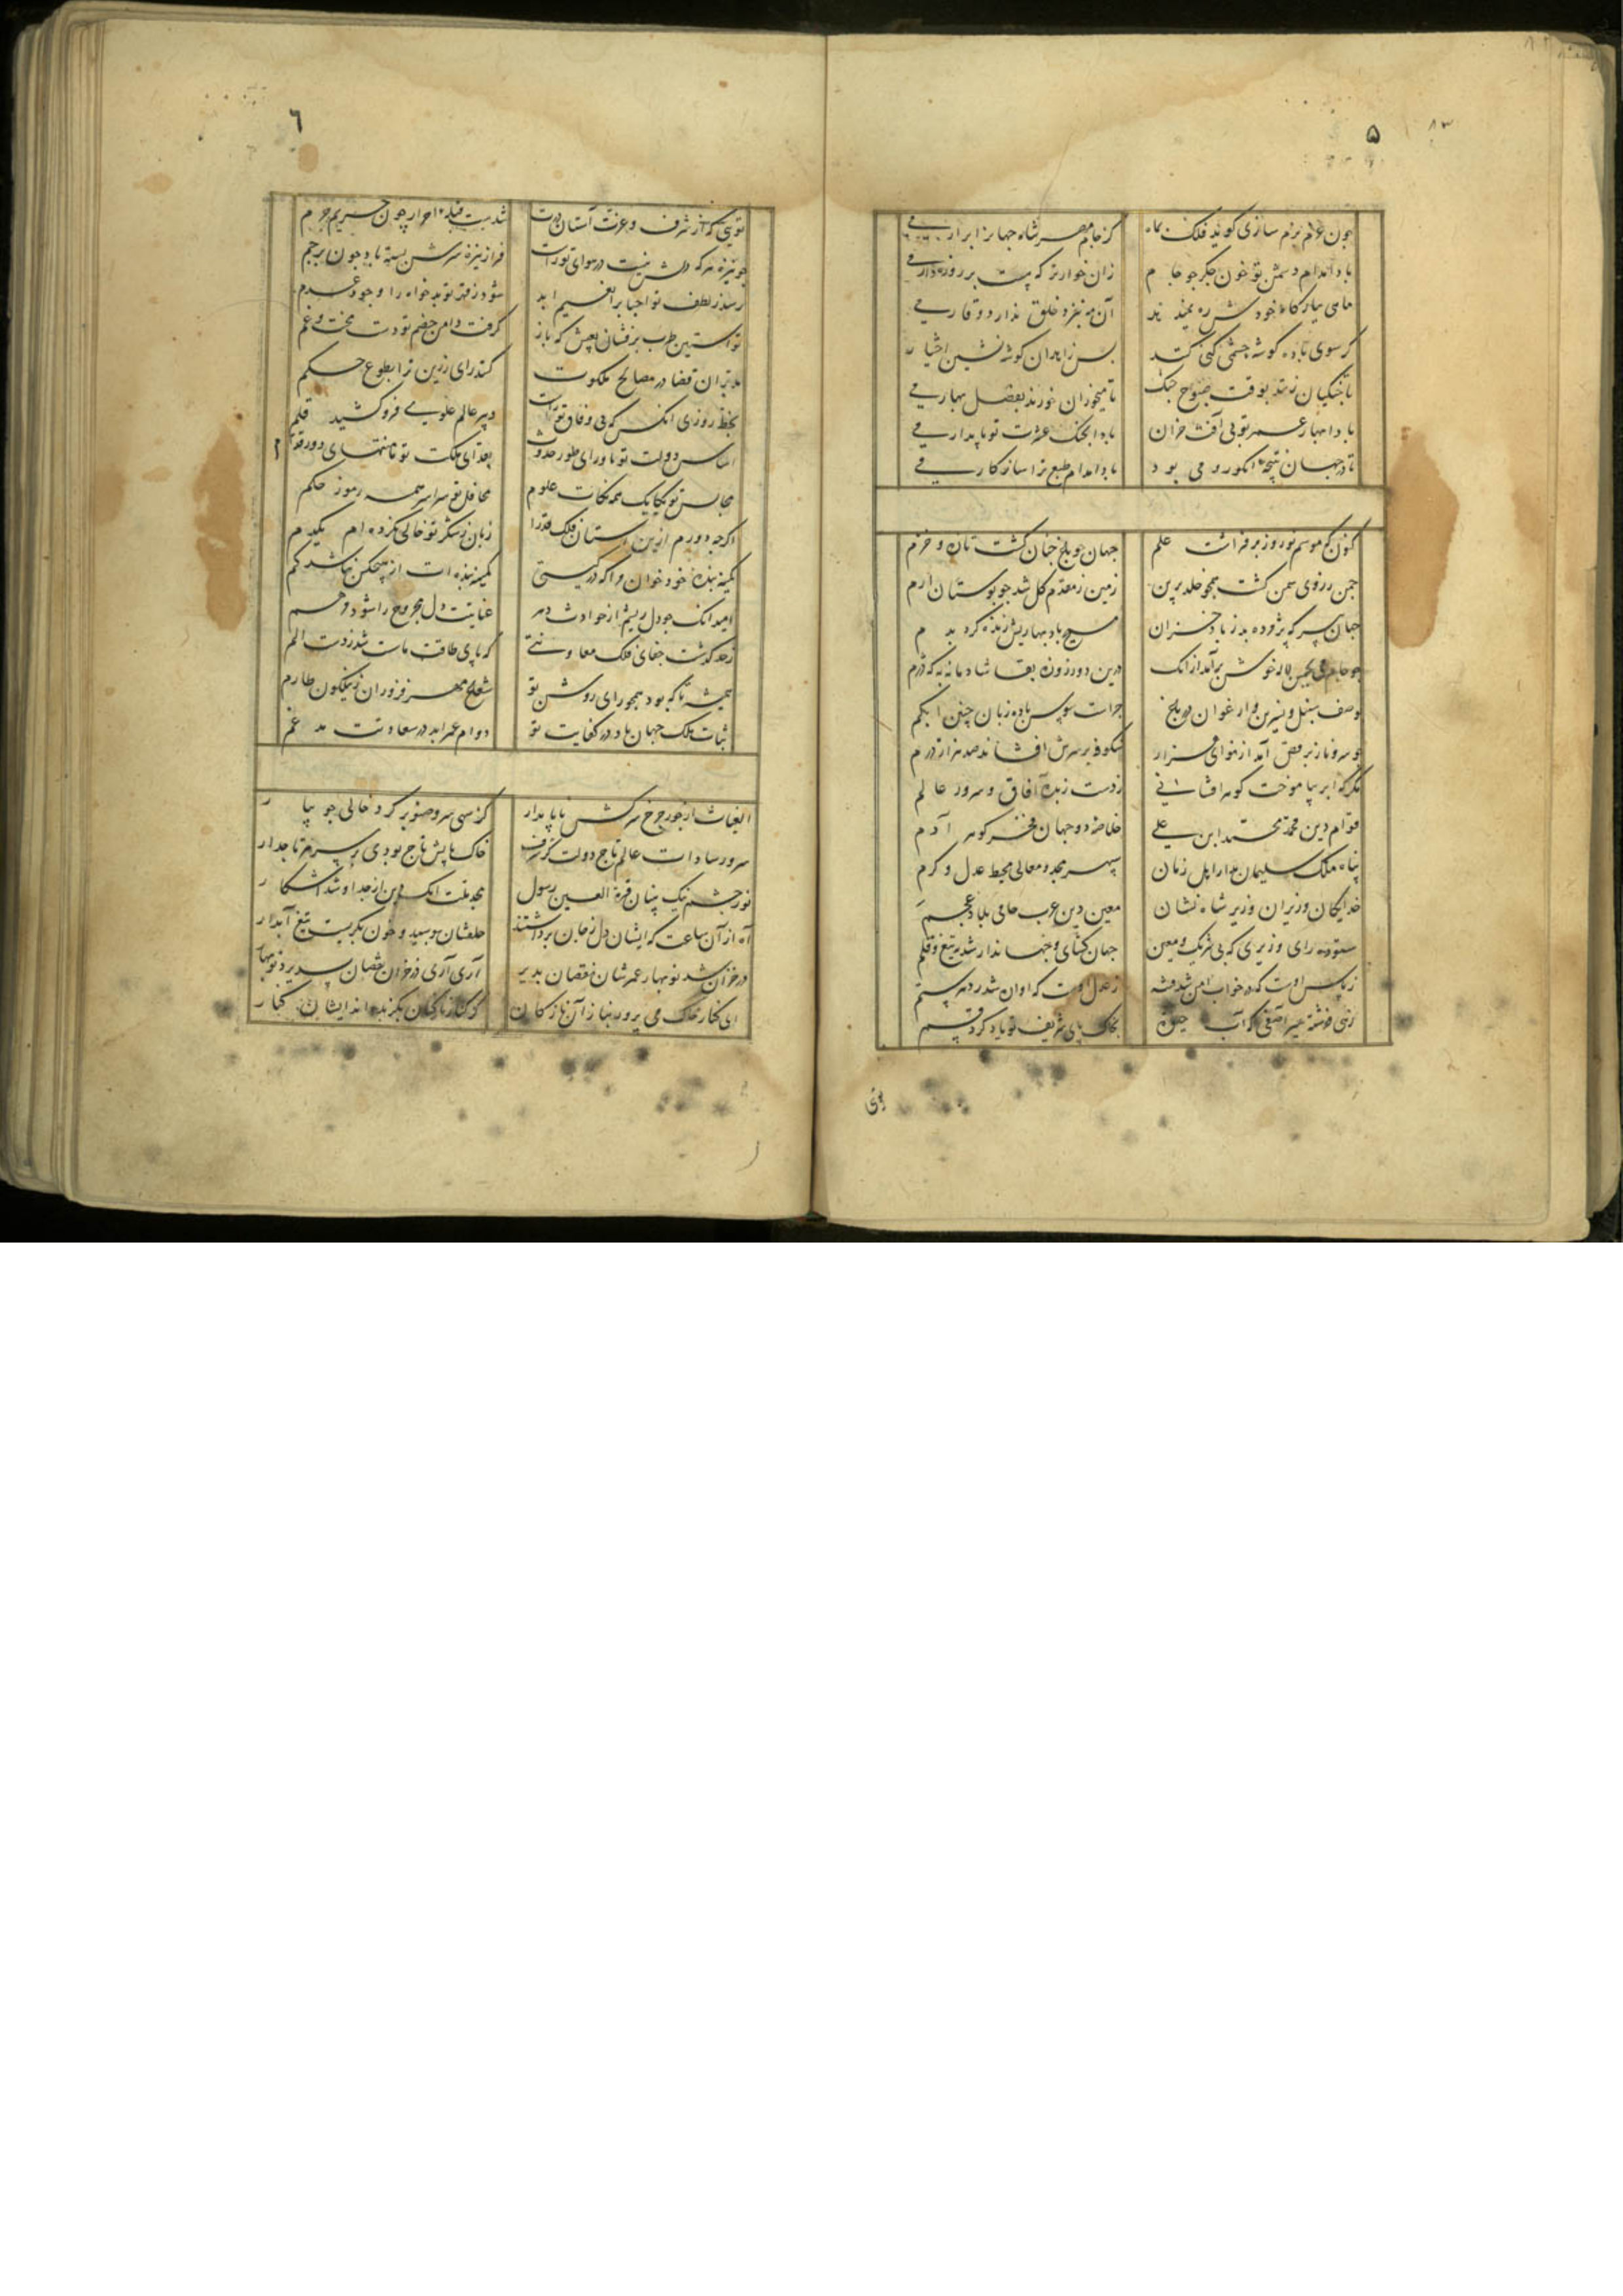 ۵
چون عزم بزم سازی کوید فلک بماه
کز جام مهر شاه جهانرا برار می
بادا مدام دشمن تو خون جکر چو جام
زان خوارتر که پیش بر روزه دار می
آن مه بنزد خلق ندارد وقار می
کر سوی باده کوشه چشمی کنی کنند
بس زاهدان کوشه نشین اختیار
تا جنکیان زنند بوقت صبوح جنک
تا میخوران خورند بفصل بهار می
بادا بهار عمر تو بی آفت خزان
بادا بجنک عشرت تو پایدار می
تا در جهان نتیجه انکور و می بود
بادا مدام طبع ترا سازکار می
کنون که موسم نوروز برفراشت علم
جهان چو باغ جنان کشت تازه و خرم
چمن ز روی سمن کشت همچو خلد برین
زمین ز مقدم کل شد چو بوستان ارم
جهان پیر که پژمرده بد ز باد خزان
مسیح باد بهاریش زنده کرد بدم
چو جام می بچمن لاله خوش برآمد ازانک
درین دو روزه بقا شادمانه به که دژم
بوصف سنبل و نسرین و ارغوان در باغ
چراست سوسن آزاده زبان چنین ابکم
چو سرو ناز برقص آمد از نوای هزار
شکوفه بر سرش افشاند صد هزار درم
مکر که ابر بیاموخت کوهر افشانی
ز دست زبده آفاق و سرور عالم
قوام دین محمد محمد ابن علی
خلاصه دو جهان مفخر کوهر آدم
پناه ملک سلیمان مدار اهل زمان
سپهر مجد و معالی محیط عدل و کرم
خدایکان وزیران وزیر شاه نشان
معین دین عرب حامی بلاد عجم
ستوده رای وزیری که بی شریک و معین
جهان کشای و جهاندار شد بتیغ و قلم
ز پاس اوست که در خواب امن شد فتنه
ز عدل اوست که آواره شد ز دهر ستم
زهی فرشته سیر آصفی که آب حیوة
بخاک پای شریف تو یاد کرد قسم
توی
۶
تویی که از شرف و عزت آستان درت
شدست قبله احرار چون حریم حرم
چو نیزه هر که دلش نیست در هوای تو راست
فراز نیزه سرش بسته باد چون پرچم
رسد ز لطف تو احباب را نعیم ابد
شود ز قهر تو بدخواه را وجود عدم
تو آستین طرب برفشان بعیش که باز
کرفت دامن خصم تو دست محنت و غم
مدبران قضا در مصالح ملکوت
کنند رای زرین ترا بطوع حکم
بحفظ روزی آنکس که بی وفاق تو زیست
دبیر عالم علوی فرو کشید قلم
اساس دولت تو ماورای طور حدوث
بقای ملکت تو تا منتهای دور قدم
مجالس تو یکایک همه نکات علوم
محافل تو سراسر همه رموز حکم
اکرچه دورم ازین آستان فلک قدرا
زبان ز شکر تو خالی نکرده ام یکدم
کمینه بنده خود خوان مرا که در کیتی
کمینه بنده ات از هیچکس نباشد کم
امید آنک چو دل ریشم از حوادث دهر
عنایتت دل مجروح را شود مرهم
ز حد کذشت جفای فلک معاونتی
که پای طاقت ما سست شد ز دست الم
همیشه تا که بود همچو رای روشن تو
شعاع مهر فروزان ز نیلکون طارم
ثبات ملک جهان باد در کفایت تو
دوام عمر ابد در سعادتت مدغم
الغیاث از جور چرخ سرکش ناپایدار
کز سهی سرو صنوبر کرد خالی جویبار
سرور سادات عالم تاج دولت کز شرف
خاک پایش تاج بودی بر سر هر تاجدار
نور چشم نیک بینان قرة العین رسول
آه از آن ساعت که ایشان دل ز جان برداشتند
حلقشان بوسید و خون بکریست تیغ آبدار
در خزان شد نوبهار عمرشان نقصان پذیر
آری آری در خزان نقصان پذیرد نوبهار
ای کنار خاک می پرور بناز آن نازکان
کز کنار نازکان بکزیده اند ایشان کنار